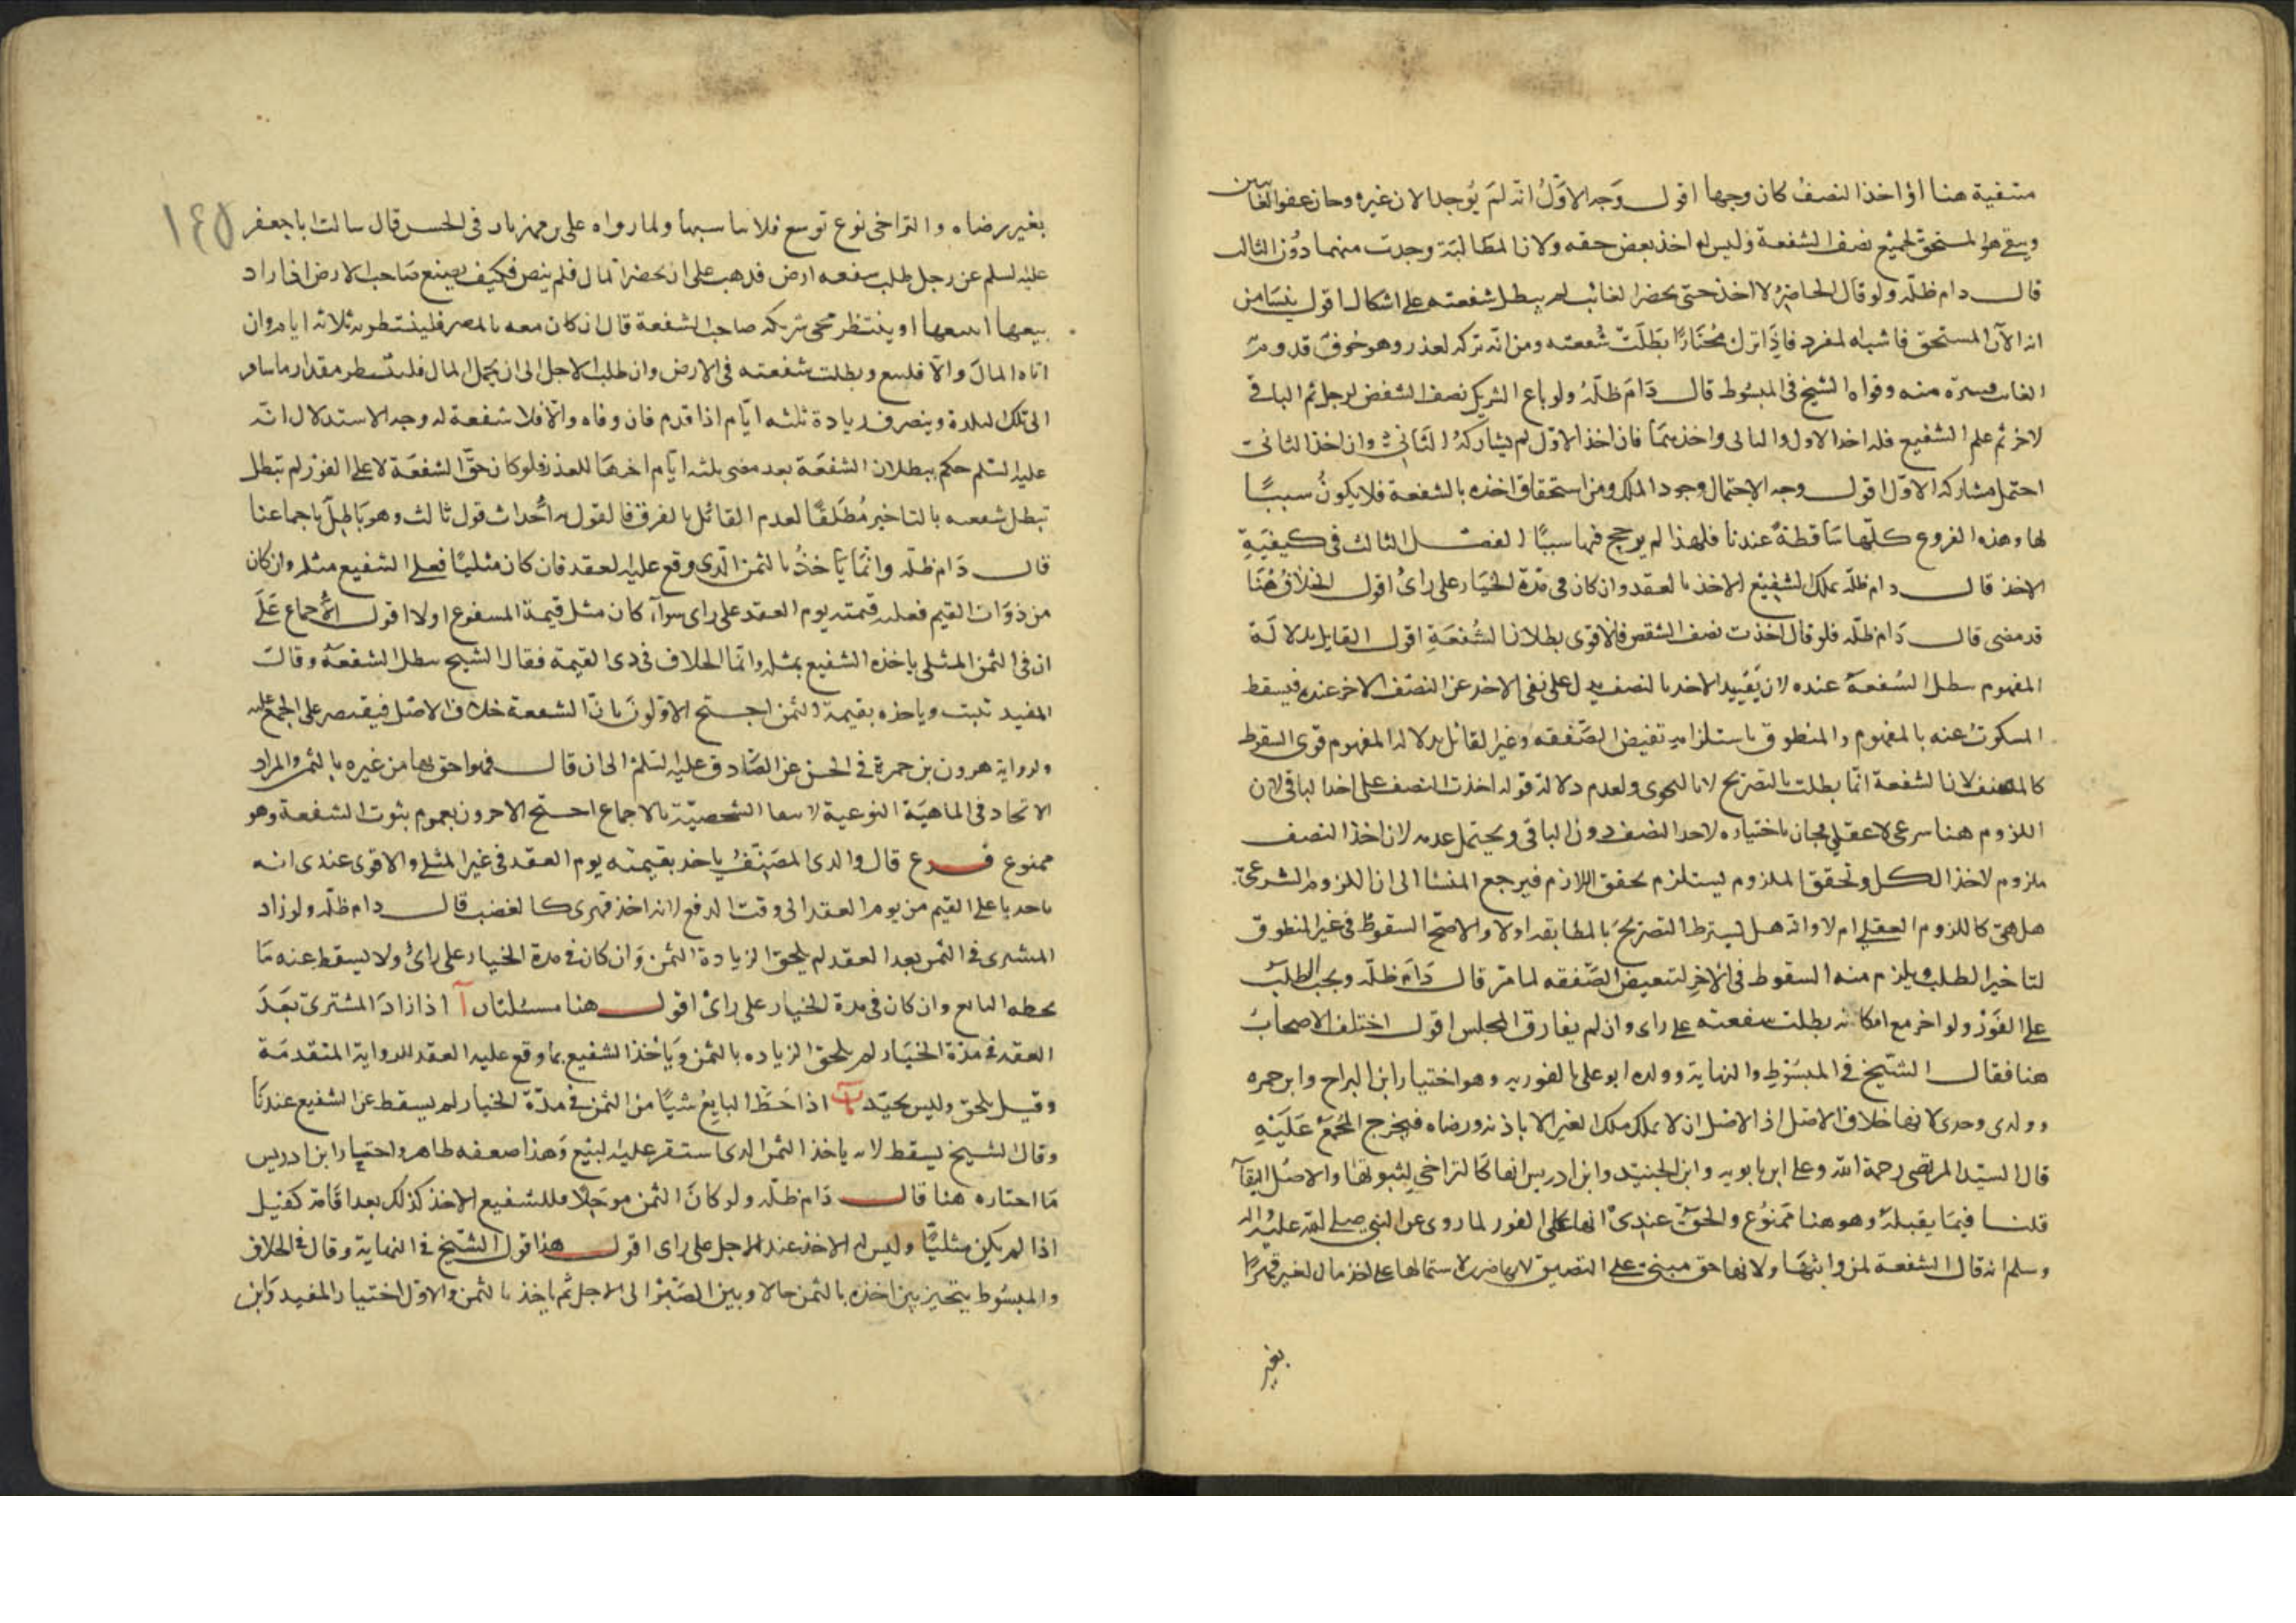 منفية هنا اذا اخذ النصف كان وجها اقول وجه الاول انه لم يوجد الان غيره وجاز عفو الغائبين
ويبقى هو المستحق لجميع نصف الشفعة وليس له اخذ بعض حقه ولان المطالبة وجدت منهما دون الثالث
قال دام ظله ولو قال الحاضر لا اخذ حتى يحضر الغائب لم يبطل شفعته على اشكال اقول ينشا من
انه الآن المستحق فاشبه المفرد فاذا ترك مختارا بطلت شفعته ومن انه تركه لعذر وهو خوف قدوم
الغائب منه وقواه الشيخ في المبسوط قال دام ظله ولو باع الشريك نصف الشقص لرجل ثم الباقي
لاخر ثم علم الشفيع فله اخذ الاول والثاني واحدهما فان اخذ الاول لم يشاركه الثاني وان اخذ الثاني
احتمل مشاركة الاول اقول وجه الاحتمال وجود الملك ومن استحقاق اخذه بالشفعة فلا يكون سببا
لها وهذه الفروع كلها ساقطة عندنا فلهذا لم يرجح فيها سببا الفصل الثالث في كيفية
الاخذ قال دام ظله يملك الشفيع الاخذ بالعقد وان كان في مدة الخيار على راى اقول الخلاف هنا
قد مضى قال دام ظله فلو قال اخذت نصف الشقص فالاقوى بطلان الشفعة اقول القايل بدلالة
المفهوم يبطل الشفعة عنده لان تقييد الاخذ بالنصف يدل على نفي الاخذ عن النصف الاخر عنده فيسقط
المسكوت عنه بالمفهوم والمنطوق باستلزامه تبعيض الصفقة وغير القائل بدلالة المفهوم قوى السقوط
كالمصنف لان الشفعة انما بطلت بالتصريح لا بالفحوى ولعدم دلالة قوله اخذت النصف على اخذ الباقي لان
اللزوم هنا شرعي لا عقلي فجاز باختياره لاحد النصف دون الباقي ويحتمل عدمه لان اخذ النصف
ملزوم لاخذ الكل وتحقق الملزوم يستلزم تحقق اللازم فيرجع المنشا الى ان اللزوم الشرعي
هل هي كاللزوم العقلي ام لا وانه هل يشترط التصريح بالمطابقة اولا والاصح السقوط في غير المنطوق
لتاخير الطلب ويلزم منه السقوط في الاخر لتبعيض الصفقة لما مر قال دام ظله ويجب الطلب
على الفور ولو اخر مع امكانه بطلت شفعته على راى وان لم يفارق المجلس اقول اختلف الاصحاب
هنا فقال الشيخ في المبسوط والنهاية وولده ابو علي بالفورية وهو اختيار ابن البراج وابن حمزه
ووالدى وجدى لانها خلاف الاصل اذ الاصل ان لا يملك ملك الغير الا باذنه ورضاه فيخرج المجمع عليه
قال السيد المرتضى رحمة الله وعلي ابن بابويه وابن الجنيد وابن ادريس انها كالتراخي لثبوتها والاصل البقاء
قلنا فيما يقبله وهو هنا ممنوع والحق عندى انها على الفور لما روى عن النبي صلى الله عليه واله
وسلم انه قال الشفعة لمن واثبها ولانها حق مبني على التضييق لا بها ضرر لاشتمالها على اخذ مال الغير قهرا
بغير
١٤٥
بغير رضاه والتراخي نوع توسع فلا يناسبها ولما رواه علي بن مهزيار في الحسن قال سالت ابا جعفر
عليه السلم عن رجل طلب شفعه ارض فذهب على ان يحضر المال فلم ينض فكيف يصنع صاحب الارض اذا اراد
بيعها ايبيعها او ينتظر مجى شريكه صاحب الشفعة قال ان كان معه بالمصر فلينتظر به ثلاثه ايام وان
اتاه المال والا فليبع وبطلت شفعته في الارض وان طلب الاجل الى ان يحمل المال فلينتظر مقدار ما سافر
الى تلك البلدة وينصرف وزيادة ثلثه ايام اذا قدم فان وفاه والا فلا شفعة له وجه الاستدلال انه
عليه السلم حكم ببطلان الشفعة بعد مضى ثلثه ايام اخرها للعذر فلو كان حق الشفعة لا على الفور لم تبطل
تبطل شفعته بالتاخير مطلقا لعدم القائل بالفرق فالقول به احداث قول ثالث وهو باطل باجماعنا
قال دام ظله وانما ياخذ بالثمن الذى وقع عليه العقد فان كان مثليا فعلى الشفيع مثله وان كان
من ذوات القيم فعليه قيمته يوم العقد على راى سواء كان مثل قيمة المشفوع اولا اقول الاجماع على
ان في الثمن المثلي ياخذه الشفيع بمثله وانما الخلاف في ذى القيمة فقال الشيخ يبطل الشفعة وقال
المفيد تثبت وياخذه بقيمة الثمن احتج الاولون بان الشفعة خلاف الاصل فيقتصر على المجمع عليه
ولرواية هرون بن حمزة في الحسن عن الصادق عليه السلم الى ان قال فهو احق بها من غيره بالثمن والمراد
الاتحاد في الماهية النوعية لانتفا الشخصية بالاجماع احتج الاخرون بعموم ثبوت الشفعة وهو
ممنوع فرع قال والدى المصنف ياخذ بقيمته يوم العقد في غير المثلي والاقوى عندى انه
ياخذ باعلى القيم من يوم العقد الى وقت الدفع لانه اخذ قهرى كالغصب قال دام ظله ولو زاد
المشترى في الثمن بعد العقد لم يلحق الزيادة الثمن وان كان في مدة الخيار على راى ولا يسقط عنه ما
يحطه البايع وان كان في مدة الخيار على راى اقول هنا مسئلتان آ اذا زاد المشترى بعد
العقد في مدة الخيار لم يلحق الزيادة بالثمن وياخذ الشفيع بما وقع عليه العقد للرواية المتقدمة
وقيل يلحق وليس بجيد ب اذا حط البايع شيا من الثمن في مدة الخيار لم يسقط عن الشفيع عندنا
وقال الشيخ يسقط لانه ياخذ الثمن الذى استقر عليه البيع وهذا ضعفه ظاهر واختيار ابن ادريس
ما اختاره هنا قال دام ظله ولو كان الثمن موجلا فللشفيع الاخذ كذلك بعد اقامة كفيل
اذا لم يكن مليا وليس له الاخذ عند الاجل على راى اقول هذا قول الشيخ في النهاية وقال في الخلاف
والمبسوط يتخير بين اخذه بالثمن حالا وبين الصبر الى الاجل ثم ياخذ بالثمن والاول اختيار المفيد وابن